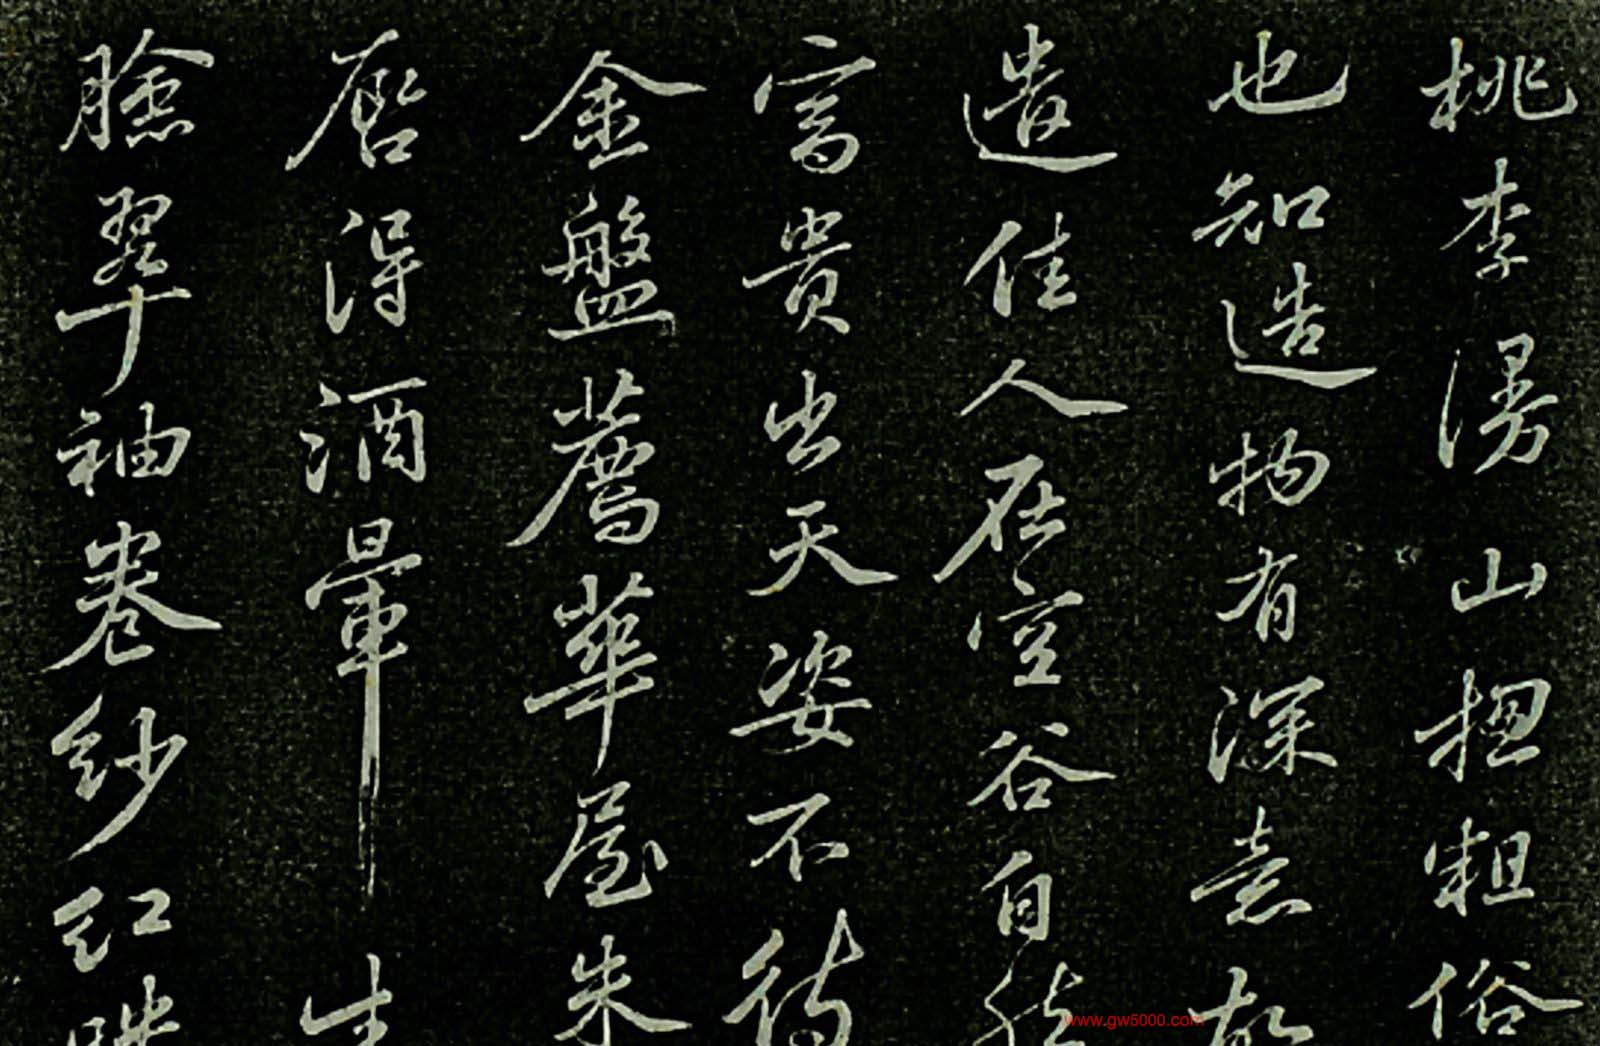 桃李漫山揔粗俗
也知造物有深意故
遣佳人在空谷自然
富貴出天姿不待
金盤薦華屋朱
唇得酒暈生
臉翠袖卷紗紅映
www.gw5000.com